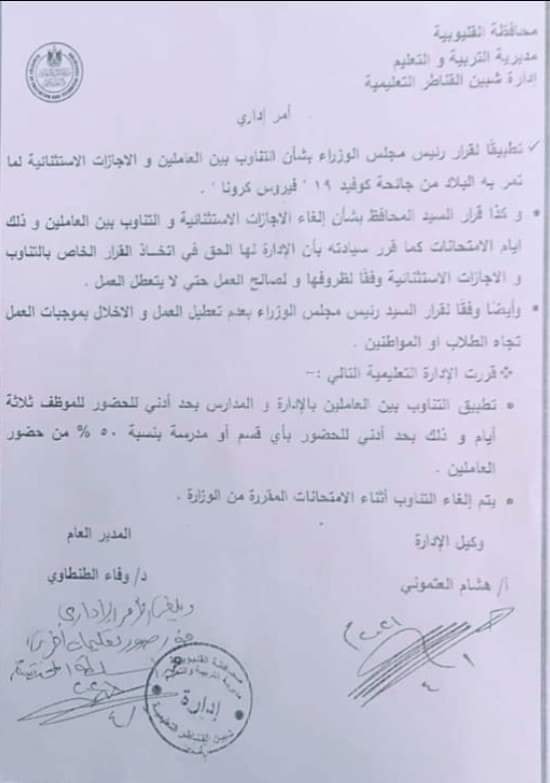 محافظة القليوبية
مديرية التربية و التعليم
إدارة شبين القناطر التعليمية
أمر إداري
✓ تطبيقًا لقرار رئيس مجلس الوزراء بشأن التناوب بين العاملين و الاجازات الاستثنائية لما
تمر به البلاد من جائحة كوفيد ١٩ " فيروس كرونا " .
* و كذا قرار السيد المحافظ بشأن إلغاء الاجازات الاستثنائية و التناوب بين العاملين و ذلك
ايام الامتحانات كما قرر سيادته بأن الإدارة لها الحق في اتخاذ القرار الخاص بالتناوب
و الاجازات الاستثنائية وفقًا لظروفها و لصالح العمل حتي لا يتعطل العمل .
* وأيضًا وفقًا لقرار السيد رئيس مجلس الوزراء بعدم تعطيل العمل و الاخلال بموجبات العمل
تجاه الطلاب او المواطنين .
❖ قررت الإدارة التعليمية التالي :-
* تطبيق التناوب بين العاملين بالإدارة و المدارس بحد أدني للحضور للموظف ثلاثة
أيام و ذلك بحد أدني للحضور بأي قسم أو مدرسة بنسبة ٥٠ % من حضور
العاملين .
* يتم إلغاء التناوب أثناء الامتحانات المقررة من الوزارة .
وكيل الإدارة
المدير العام
أ/ هشام العتموني
د/ وفاء الطنطاوي
ويلغى الأمر الإدارى
صدور تعليمات أخرى
السلطة المختصة
٢٠٢١م
محافظة القليوبية
مديرية التربية والتعليم
إدارة
شبين القناطر التعليمية